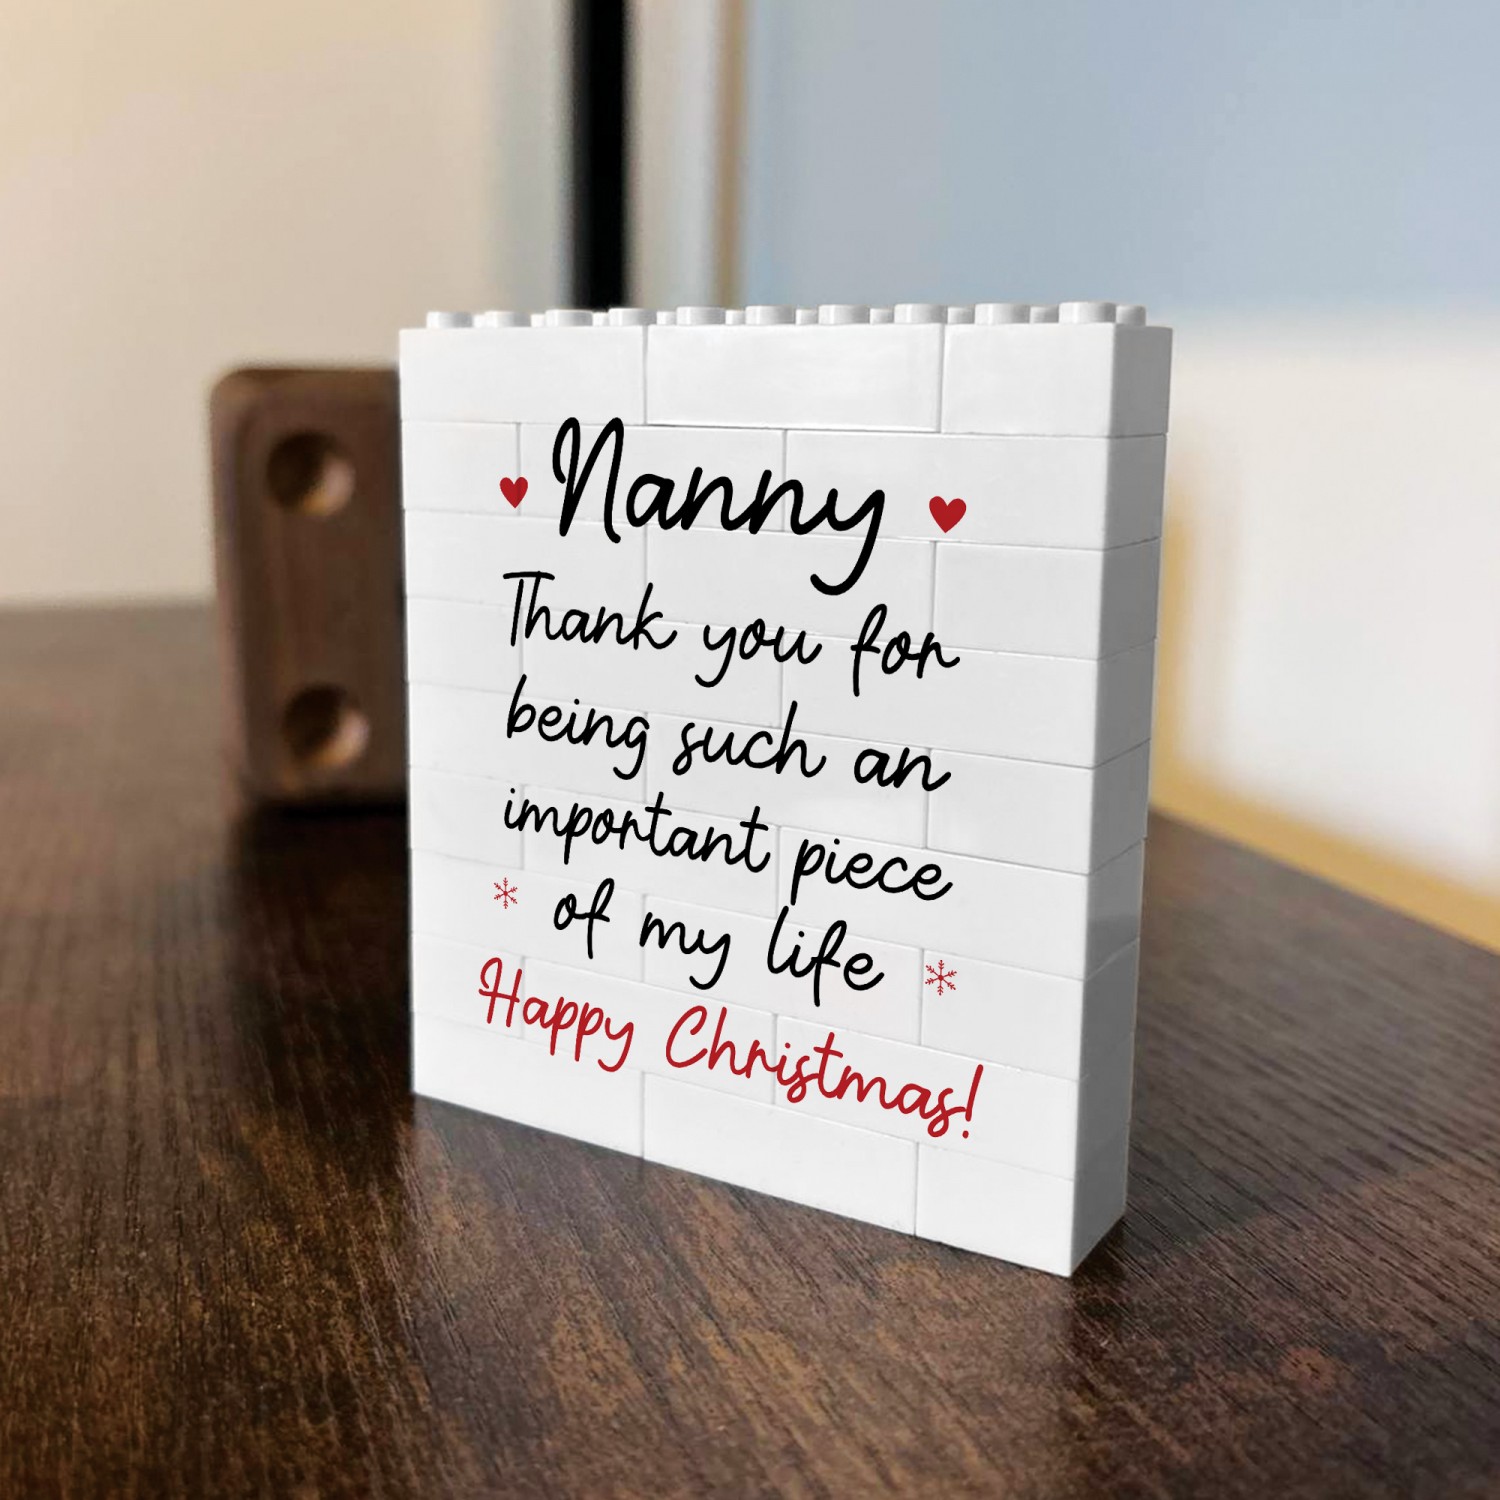 Nanny
Thank you for
being such an
important piece
of my life
Happy Christmas!